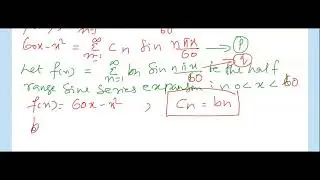 60x-x² = ∑_{n=1}^{∞} Cn Sin nπx/60 → p
Let f(x) = ∑_{n=1}^{∞} bn Sin nπx/60 → q be the half
range Sine Series expansion in 0<x<60
f(x) = 60x-x² , Cn = bn
b